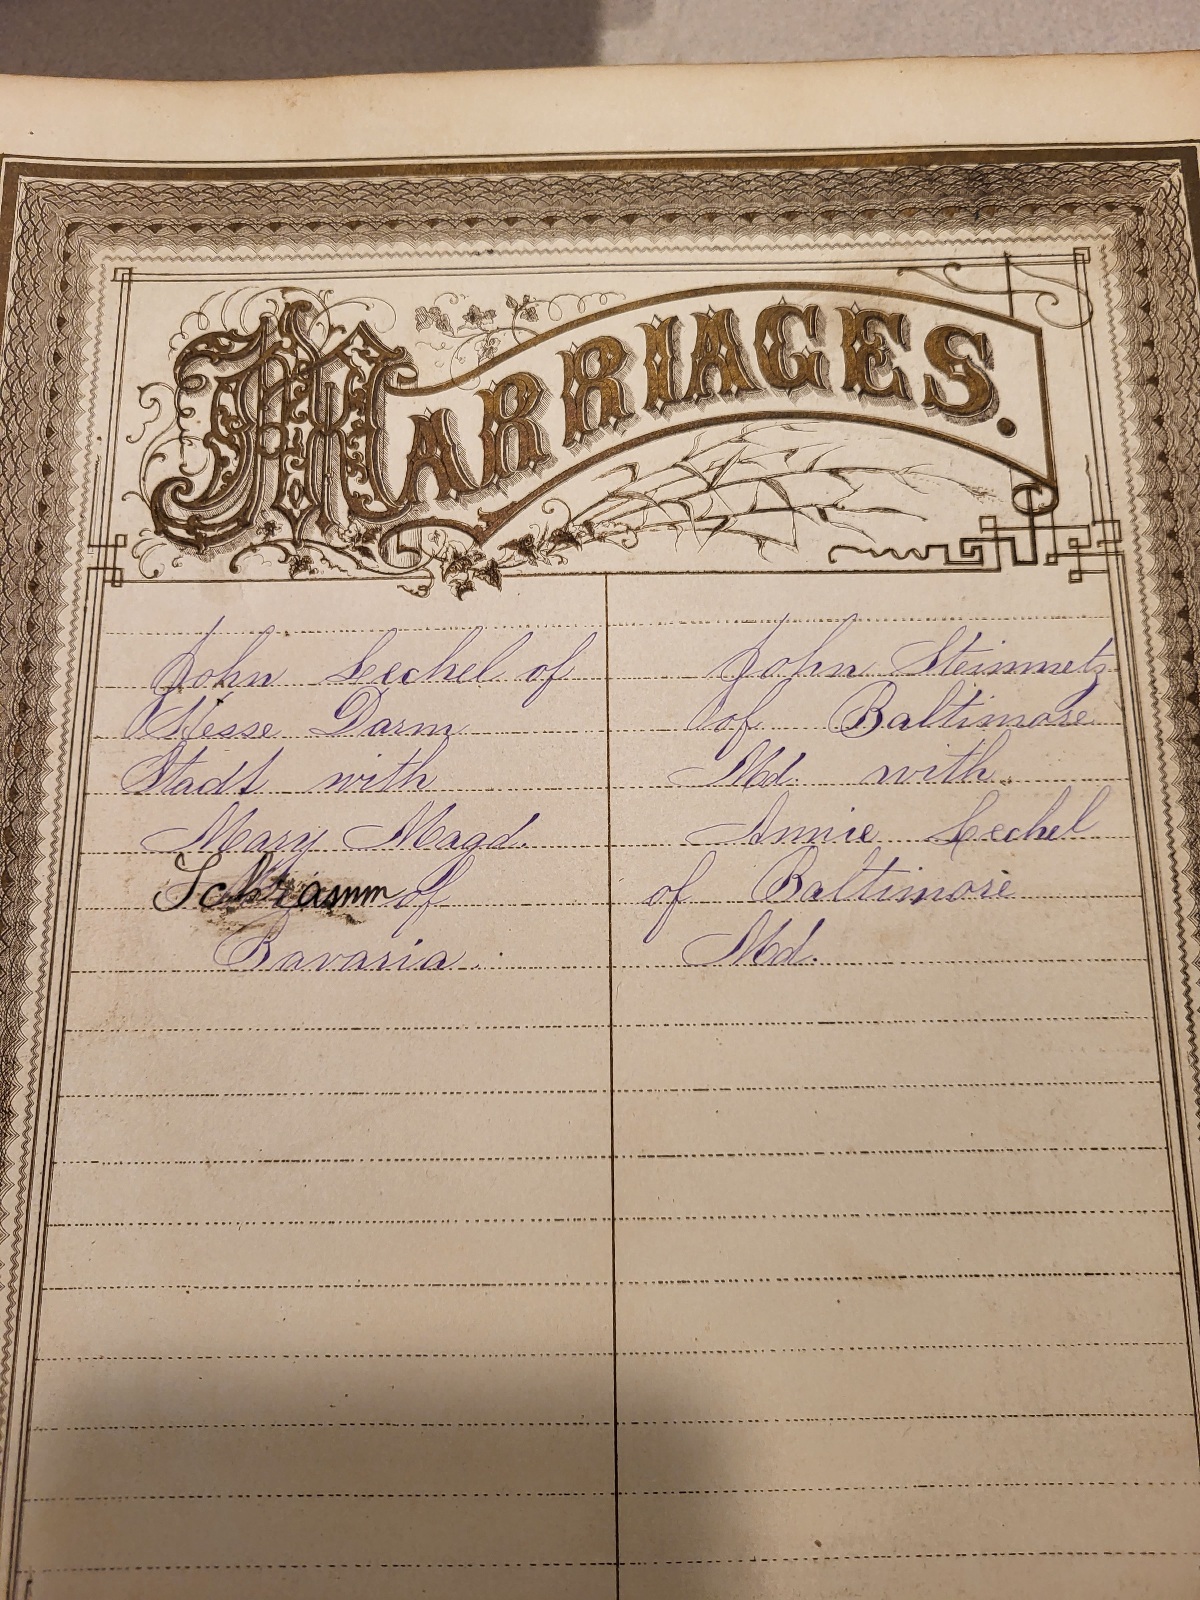 MARRIAGES.
John Lechel of
Hesse Darm
Stadt with
Mary Magd.
Schramm of
Bavaria.
John Steinmetz
of Baltimore
Md. with
Annie Lechel
of Baltimore
Md.